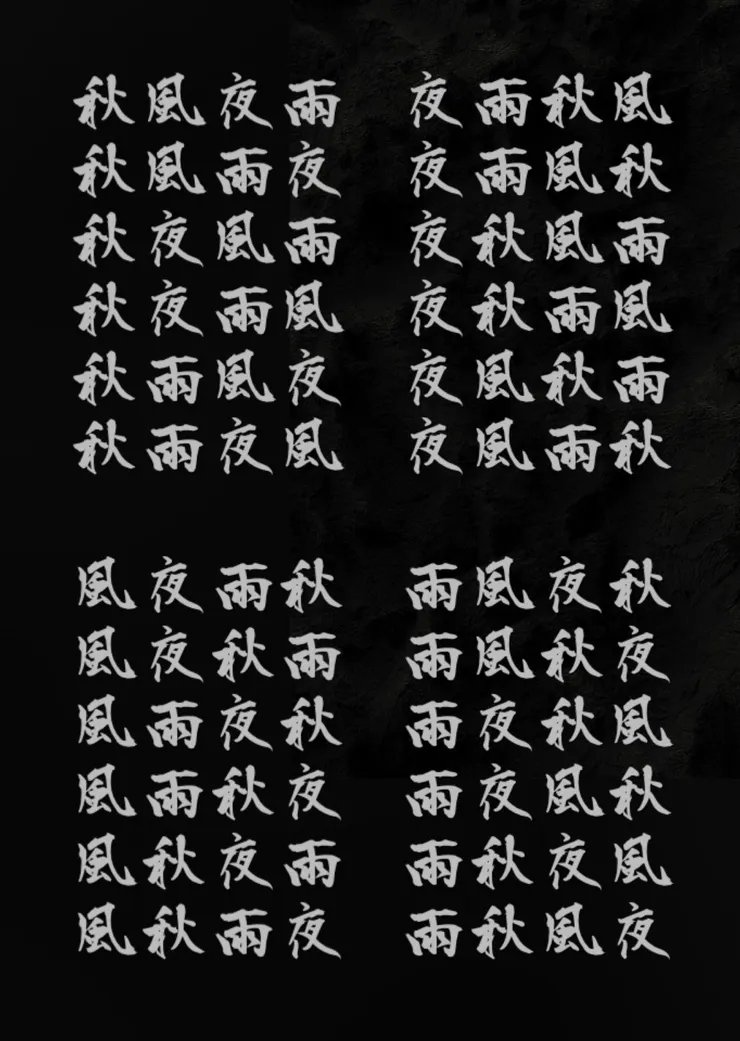 秋風夜雨
秋風雨夜
秋夜風雨
秋夜雨風
秋雨風夜
秋雨夜風
夜雨秋風
夜雨風秋
夜秋風雨
夜秋雨風
夜風秋雨
夜風雨秋
風夜雨秋
風夜秋雨
風雨夜秋
風雨秋夜
風秋夜雨
風秋雨夜
雨風夜秋
雨風秋夜
雨夜秋風
雨夜風秋
雨秋夜風
雨秋風夜